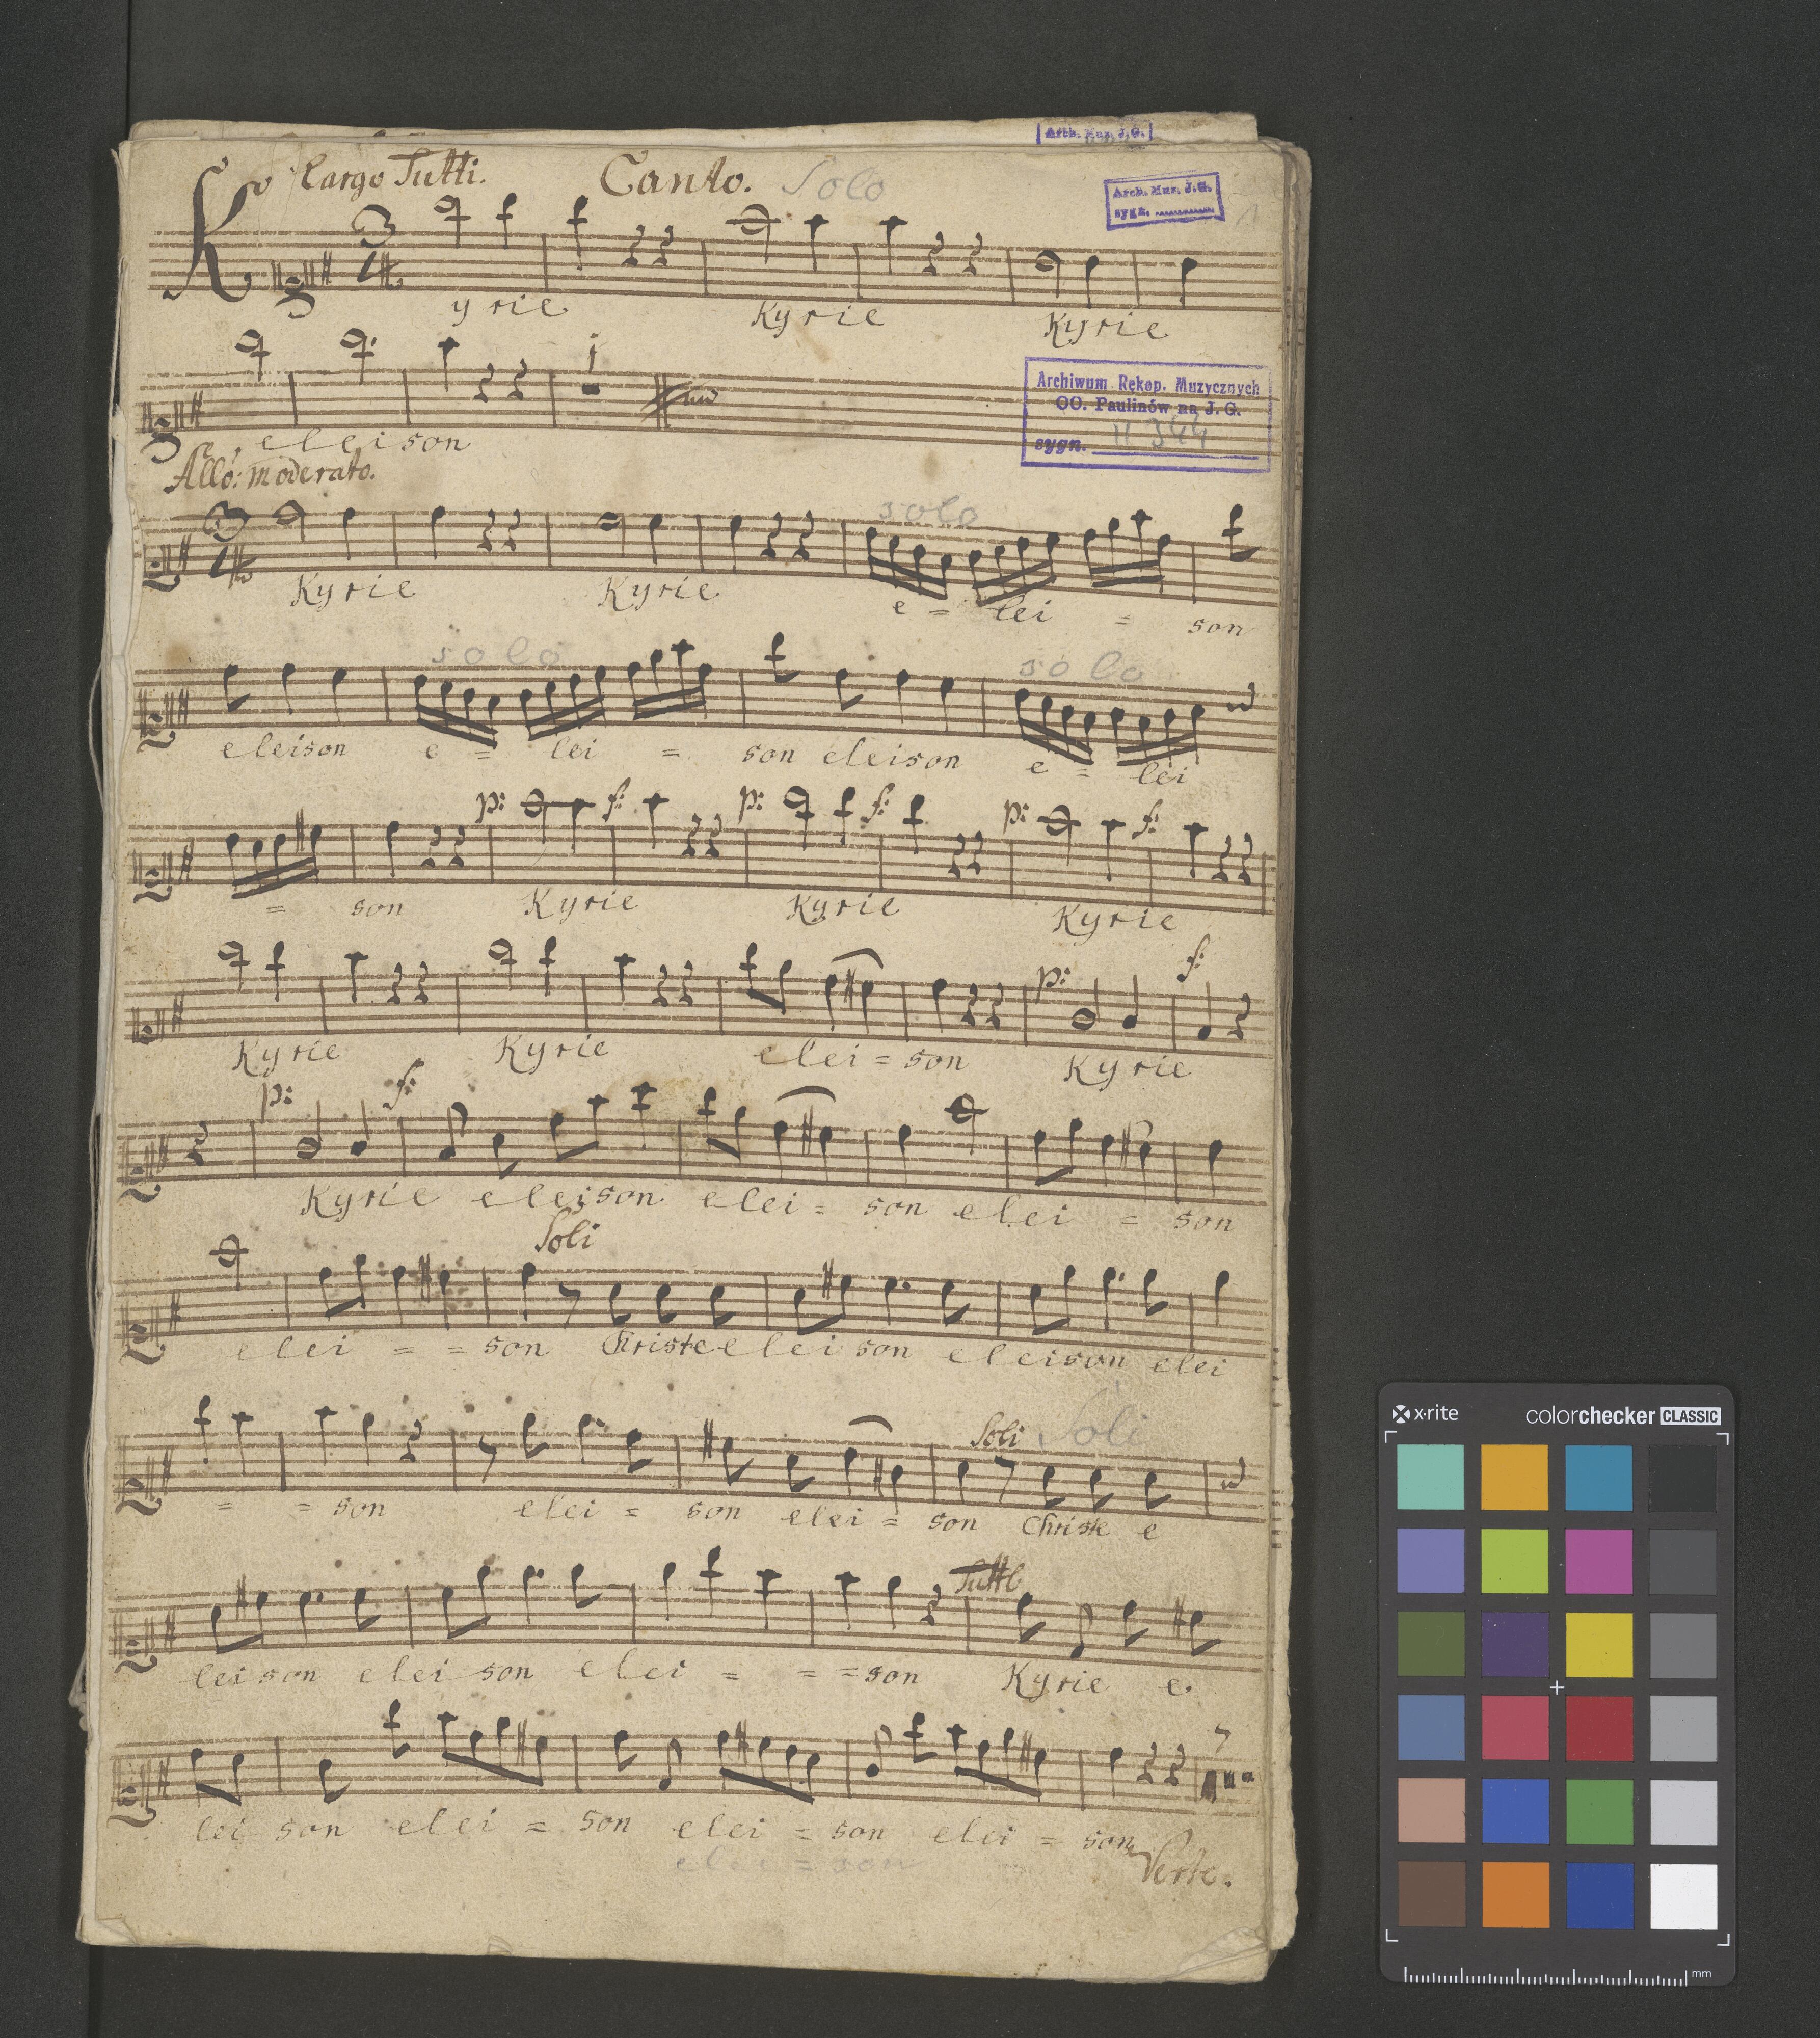 Arch. Muz. J. G.
Largo Tutti. Canto. Solo
Arch. Muz. J. G.
sygn.
1
3
4
Kyrie Kyrie Kyrie
1
eleison
Archiwum Rękop. Muzycznych
OO. Paulinów na J. G.
sygn. II 344
Allo: moderato.
solo
3
4
Kyrie Kyrie e = lei = son
solo solo
eleison e = lei = son eleison e = lei
p: f: p: f: p: f:
= son Kyrie Kyrie Kyrie
p: f:
Kyrie Kyrie elei = son Kyrie
p: f:
Kyrie eleison elei = son elei = son
Soli
elei = = son Christe eleison eleison elei
Soli Soli
= = son elei = son elei = son Christe e
Tutti
leison eleison elei = = = son Kyrie e
7
lei son elei = son elei = son elei = son
elei = son
Verte.
x·rite colorchecker CLASSIC
mm